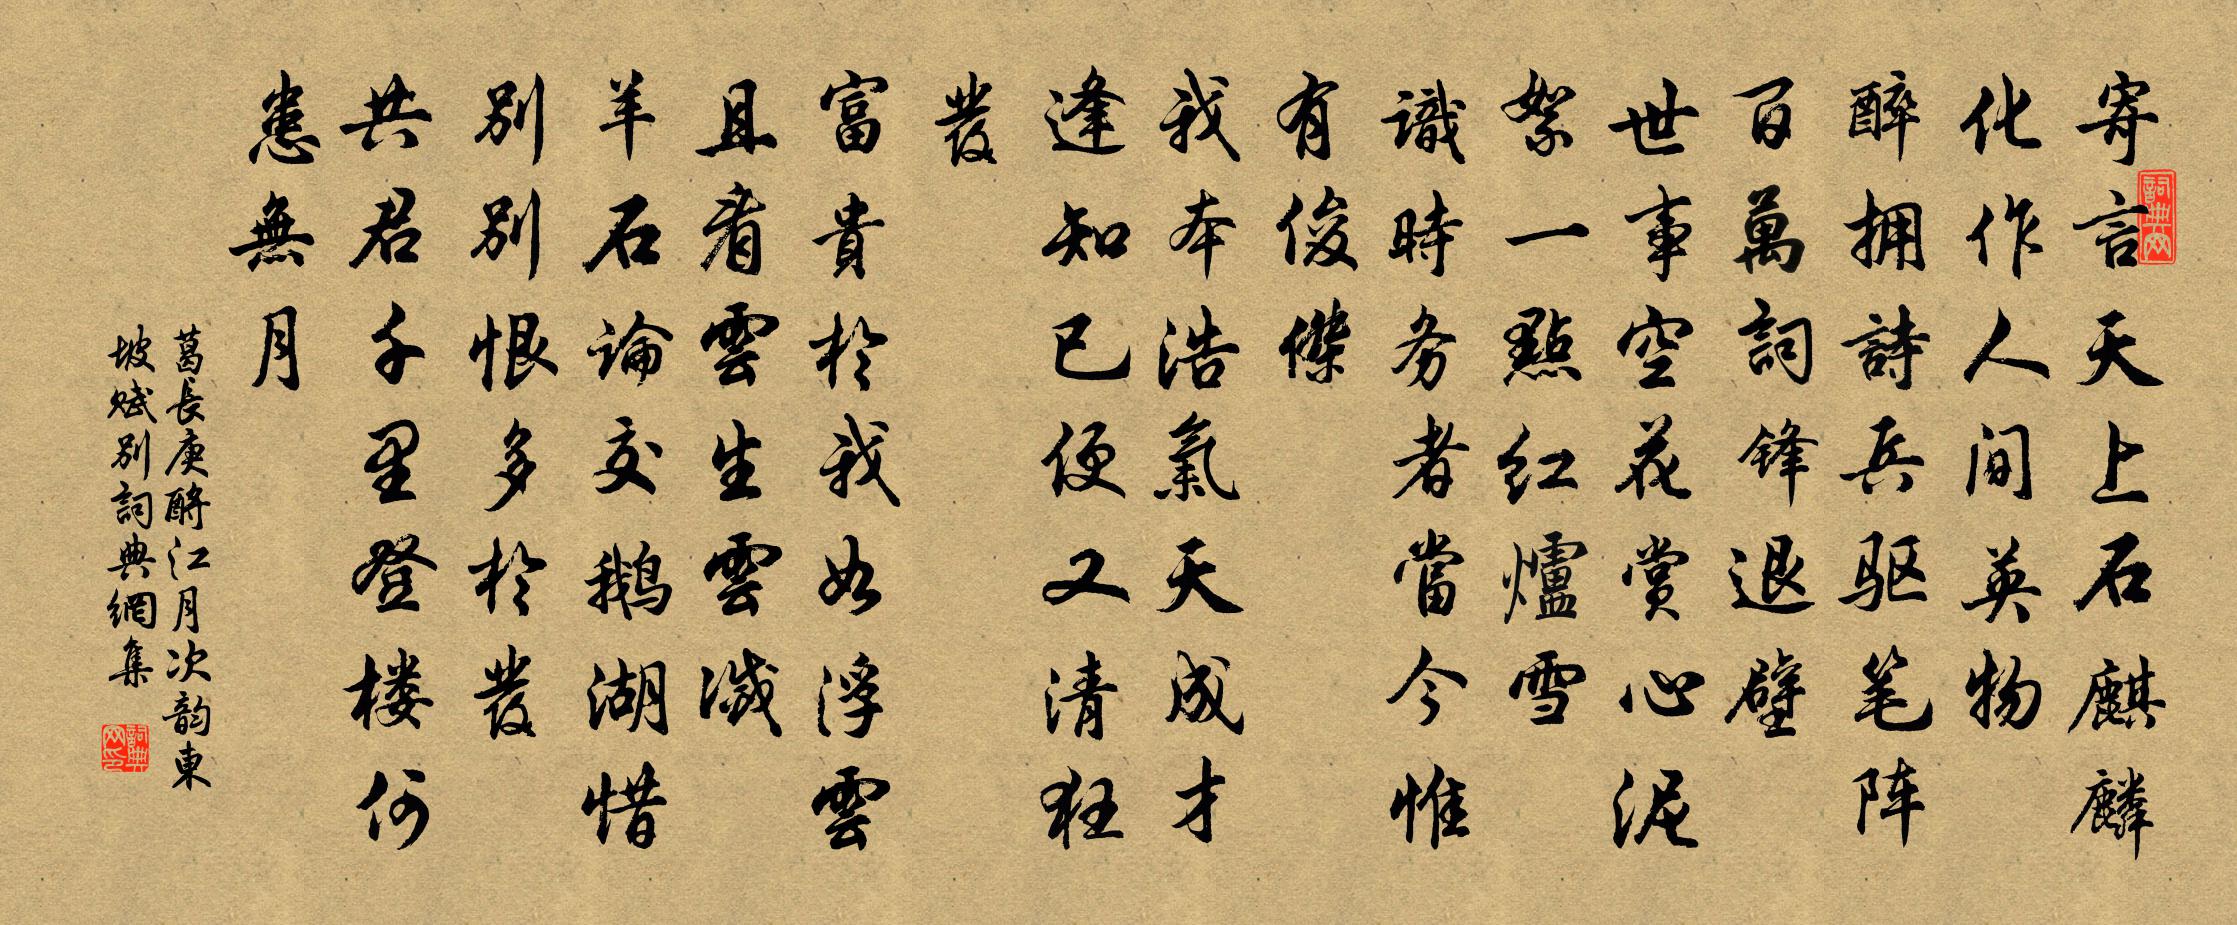 寄言天上石麒麟
化作人间英物
醉拥詩兵驱笔阵
百萬詞锋退壁
世事空花赏心泥
絮一點红爐雪
識時务者當今惟
有俊傑
我本浩氣天成才
逢知已便又清狂
發
富貴於我如浮雲
且看雲生雲滅
羊石論交鹅湖惜
别别恨多於發
共君千里登楼何
患無月
葛長庚酹江月次韵東
坡赋别詞典網集
詞典网
詞典网印